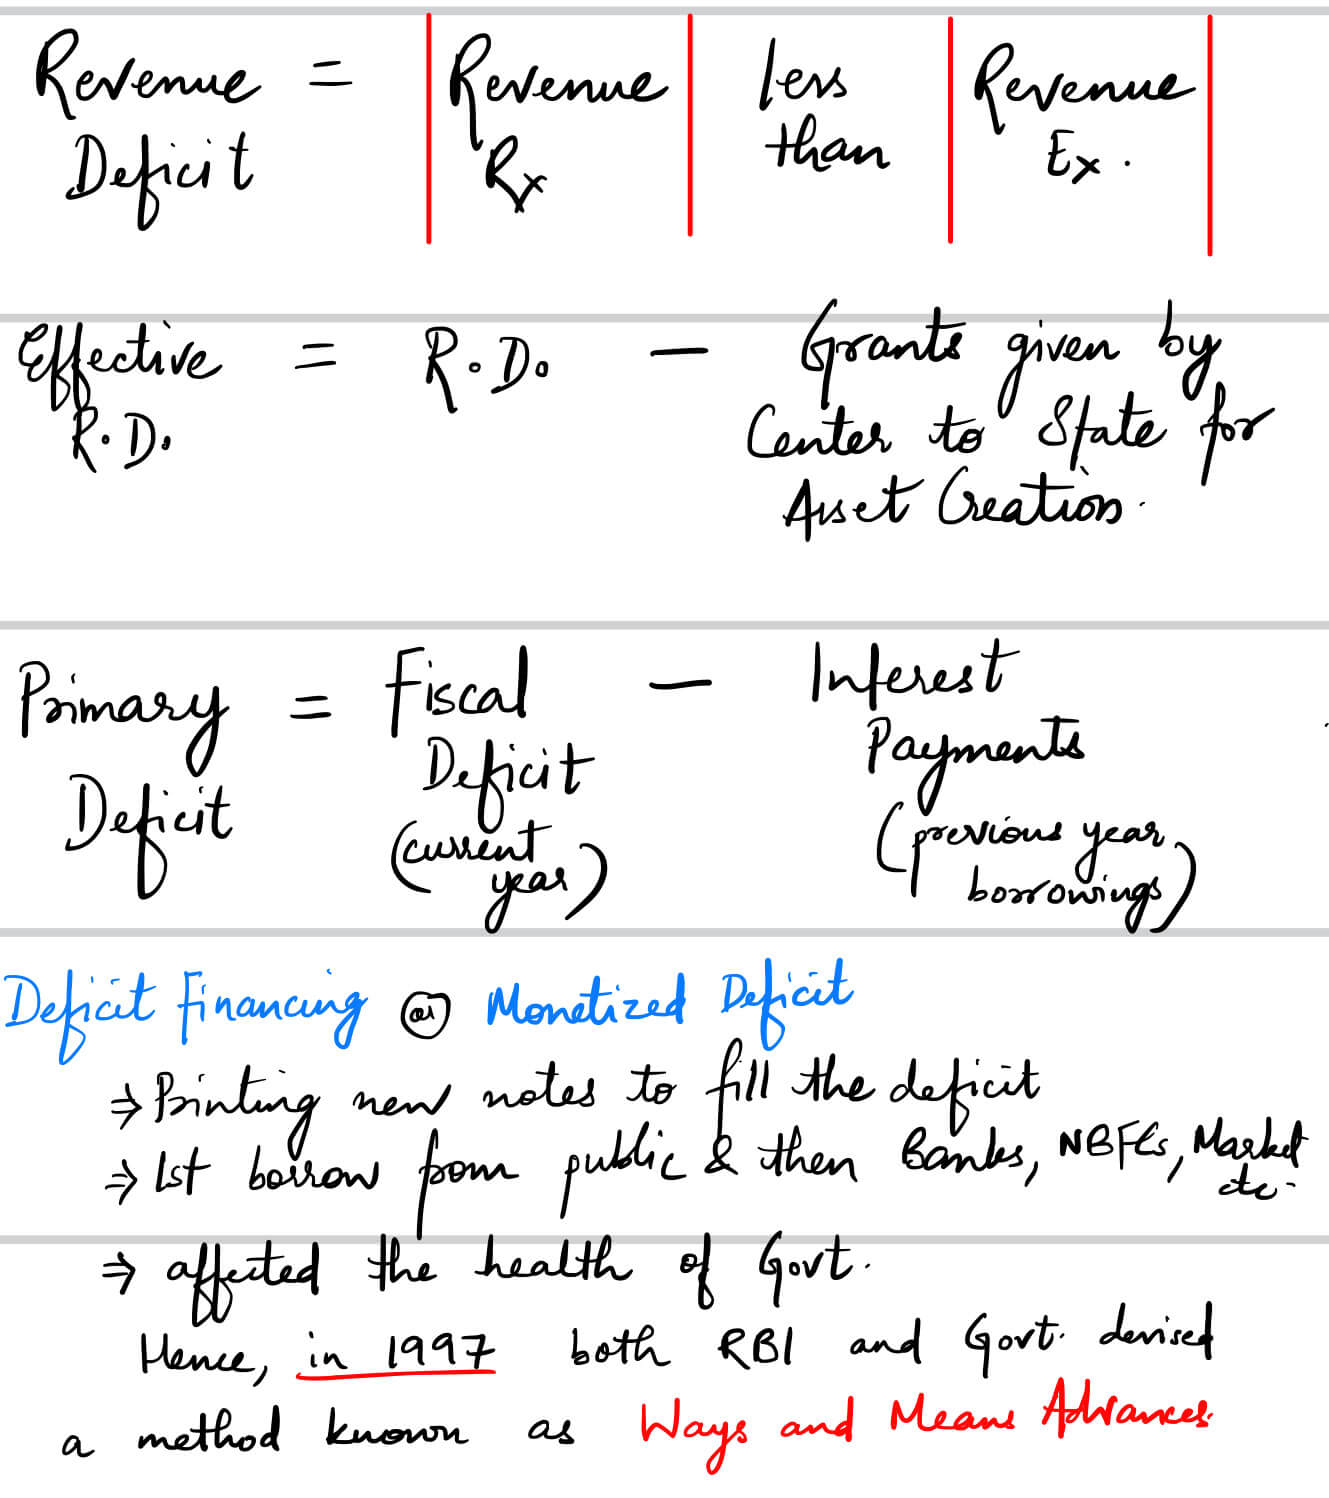 Revenue = | Revenue | less | Revenue |
Deficit Rx than Ex.
Effective = R.D. — Grants given by
R.D. Center to State for
Asset Creation.
Primary = Fiscal — Interest
Deficit Deficit Payments
(current (previous year
year) borrowings)
Deficit Financing (or) Monetized Deficit
⇒ Printing new notes to fill the deficit
⇒ 1st borrow from public & then Banks, NBFCs, Market
etc.
⇒ affected the health of Govt.
Hence, in 1997 both RBI and Govt. devised
a method known as Ways and Means Advances.